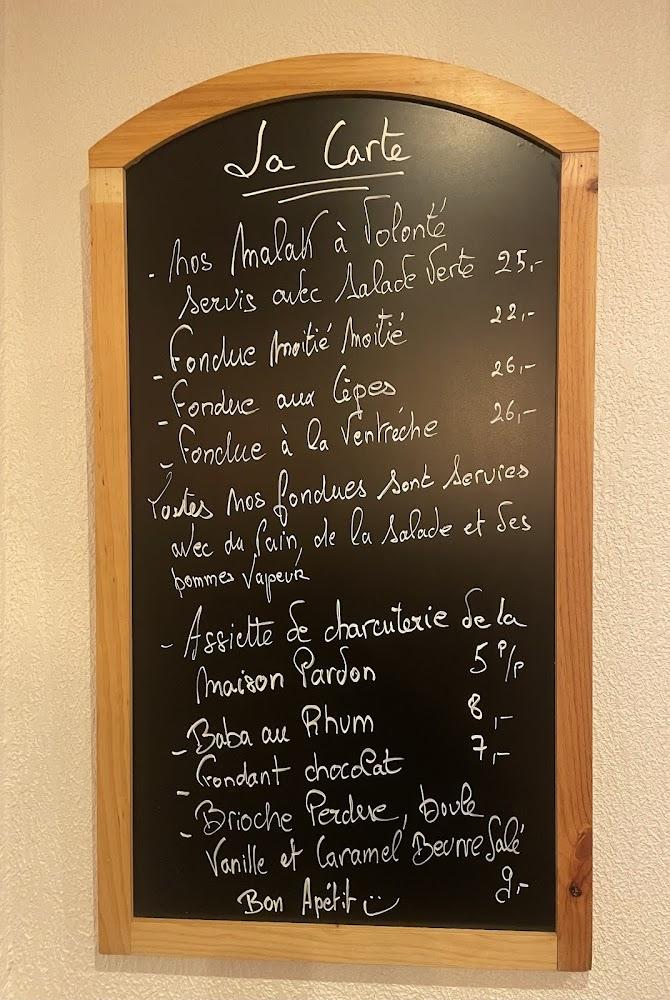 La Carte
- Nos Malak à Volonté
Servis avec Salade Verte 25,-
- Fondue Moitié Moitié 22,-
- Fondue aux Cèpes 26,-
- Fondue à la Ventrêche 26,-
Toutes Nos fondues sont Servies
avec du Pain, de la Salade et des
pommes Vapeur
- Assiette de charcuterie de la
Maison Pardon 5 P/p
- Baba au Rhum 8,-
- Fondant chocolat 7,-
- Brioche Perdue, boule
Vanille et Caramel Beurre Salé
9,-
Bon Apétit